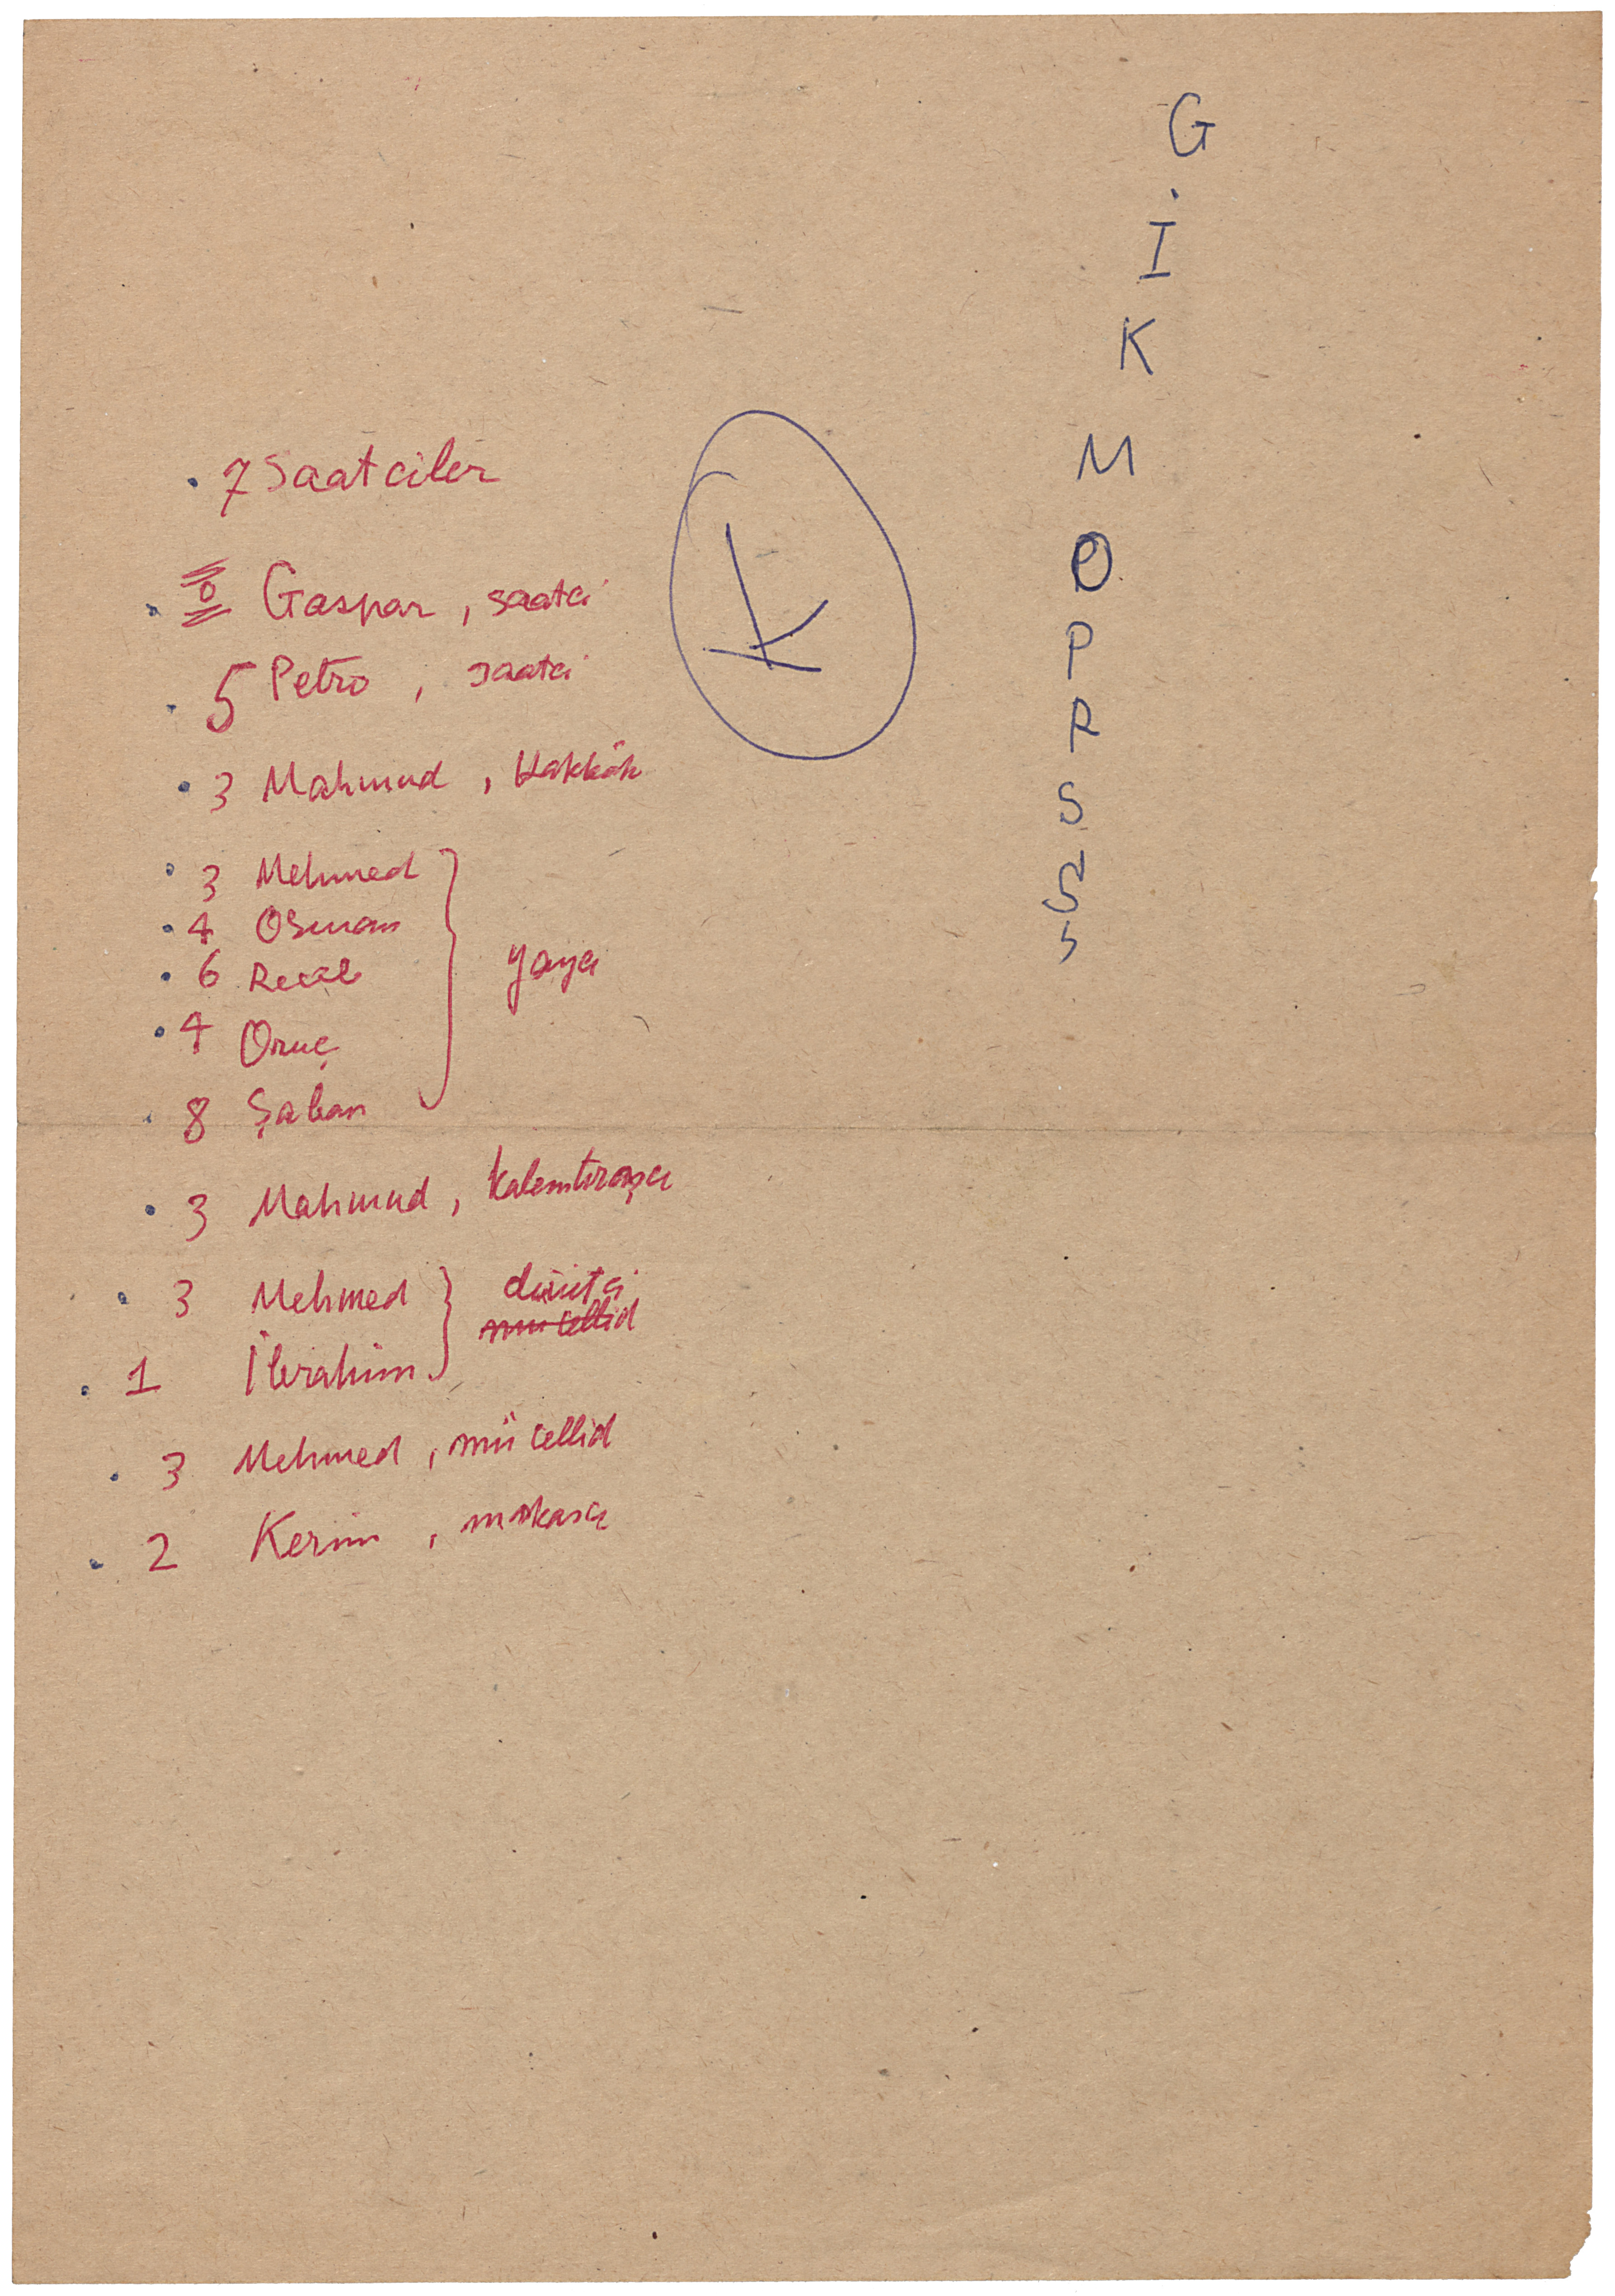 G
İ
K
M
O
P
R
S
Ş
5
K
7 Saatciler
0 Gaspar, saatci
5 Petro, saatci
3 Mahmud, Hakkâk
3 Mehmed
4 Osman
6 Receb
4 Oruç
8 Şaban
yaycı
3 Mahmud, kalemtıraşcı
3 Mehmed
1 İbrahim
divitci
mücellid
3 Mehmed, mücellid
2 Kerim, mıkascı